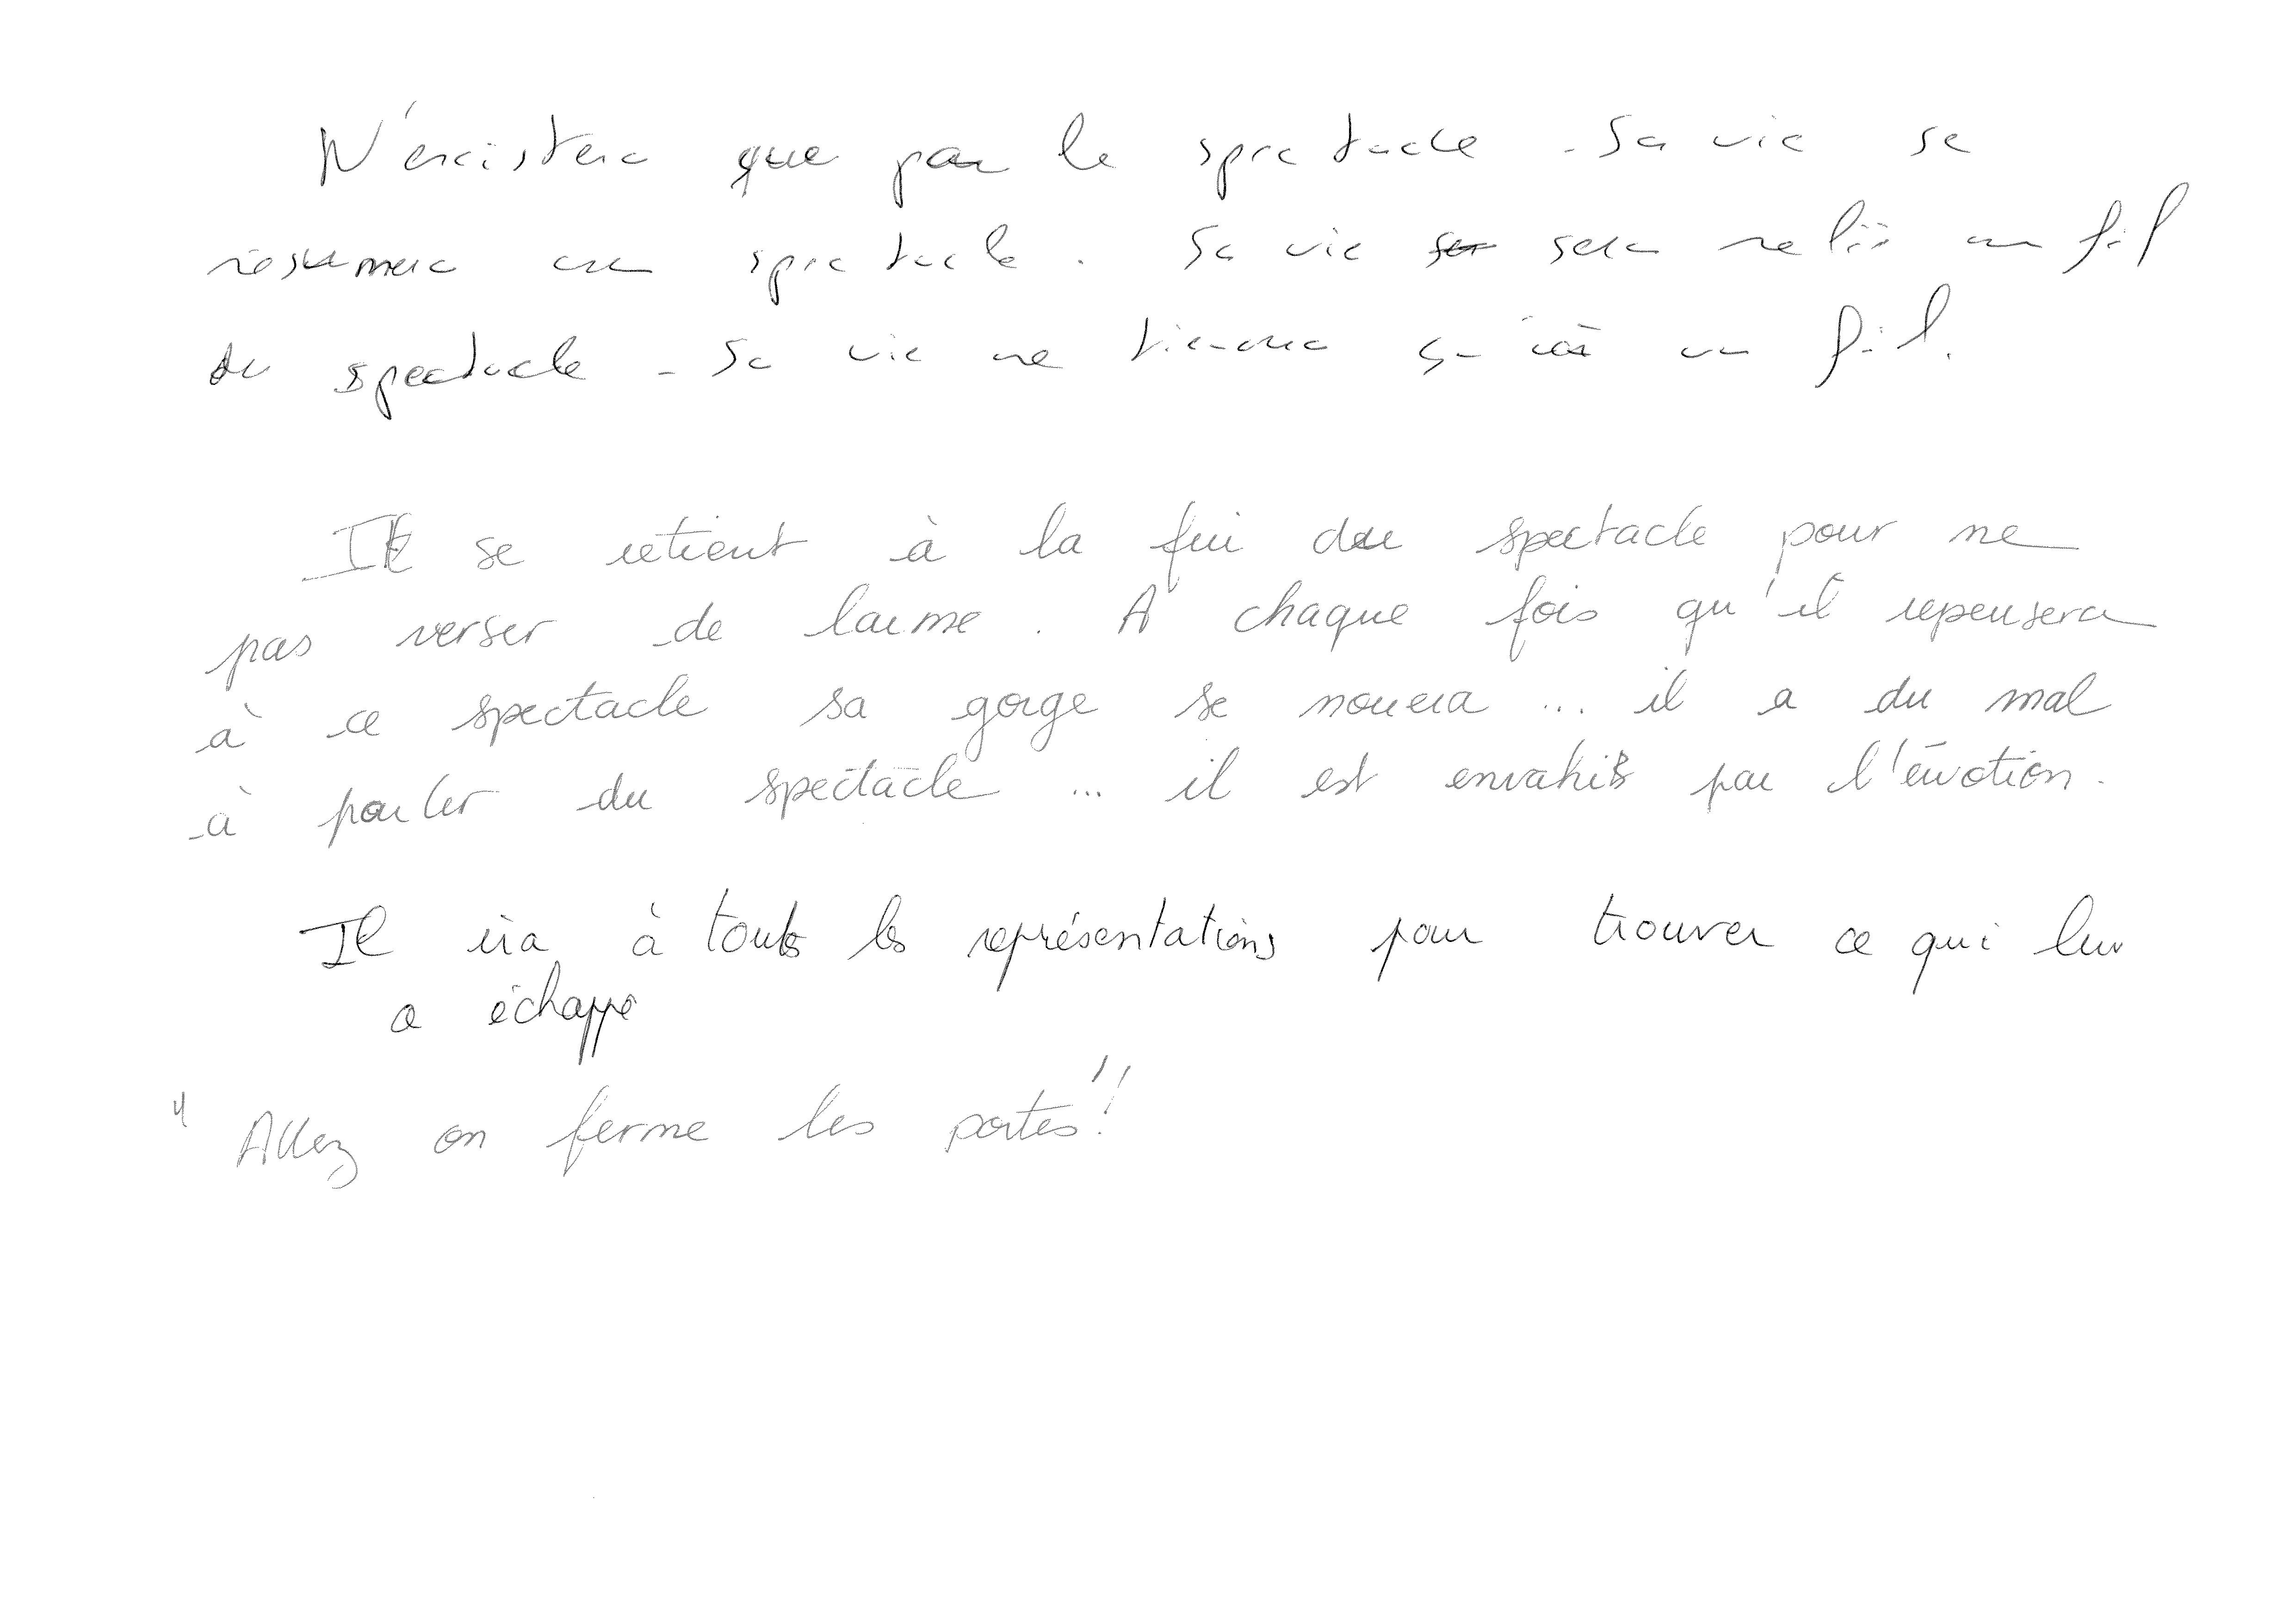 N'existera que par le spectacle. Sa vie se
résumera au spectacle. Sa vie sera relié au fil
du spectacle. Sa vie ne tiendra qu'à un fil.
Il se retient à la fin du spectacle pour ne
pas verser de larme. A chaque fois qu'il repensera
à ce spectacle sa gorge se nouera ... il a du mal
à parler du spectacle ... il est envahit par l'émotion.
Il ira à toutes les représentations pour trouver ce qui lui
a échappé
"Allez on ferme les portes"!